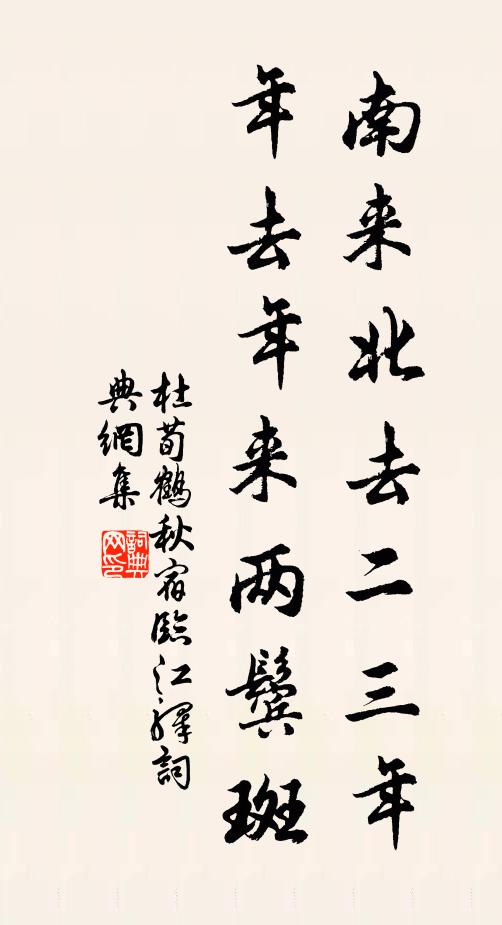 南来北去二三年
年去年来两鬓斑
杜荀鶴秋宿臨江驛詞
典網集
詞典
网印